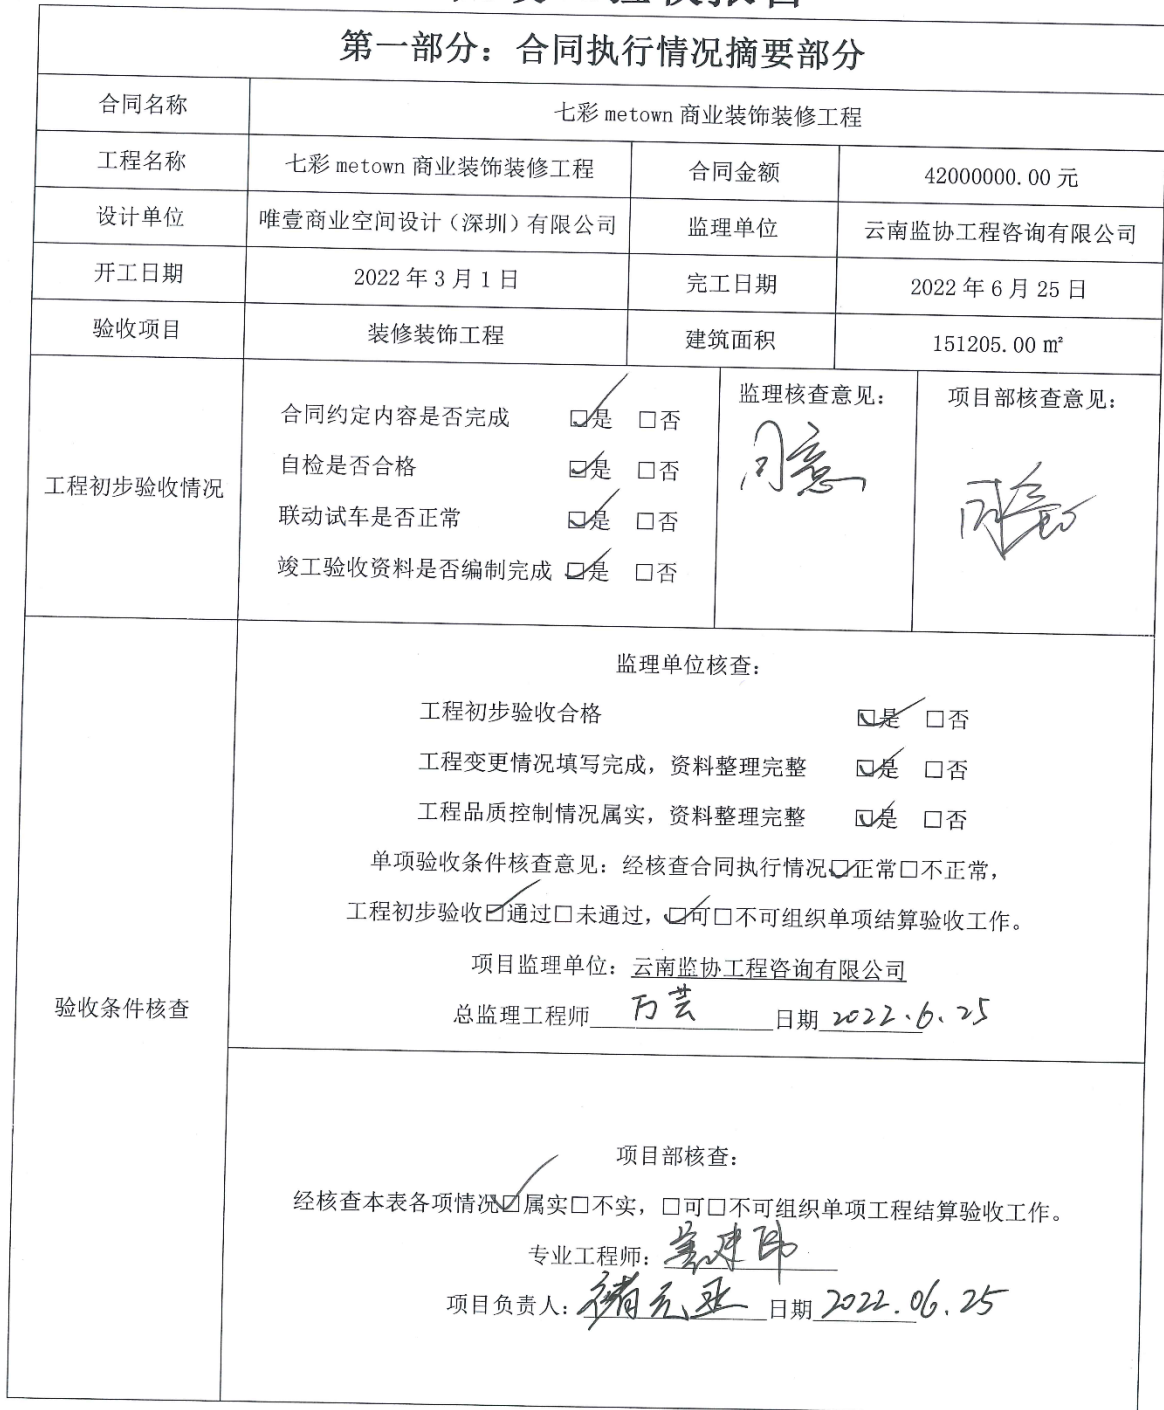 第一部分：合同执行情况摘要部分
合同名称 七彩 metown 商业装饰装修工程
工程名称 七彩 metown 商业装饰装修工程 合同金额 42000000.00 元
设计单位 唯壹商业空间设计（深圳）有限公司 监理单位 云南监协工程咨询有限公司
开工日期 2022 年 3 月 1 日 完工日期 2022 年 6 月 25 日
验收项目 装修装饰工程 建筑面积 151205.00 ㎡
工程初步验收情况
合同约定内容是否完成 ☑是 □否
自检是否合格 ☑是 □否
联动试车是否正常 ☑是 □否
竣工验收资料是否编制完成 ☑是 □否
监理核查意见：
同意
项目部核查意见：
同意
验收条件核查
监理单位核查：
工程初步验收合格 ☑是 □否
工程变更情况填写完成，资料整理完整 ☑是 □否
工程品质控制情况属实，资料整理完整 ☑是 □否
单项验收条件核查意见：经核查合同执行情况☑正常□不正常，
工程初步验收☑通过□未通过，☑可□不可组织单项结算验收工作。
项目监理单位：云南监协工程咨询有限公司
总监理工程师 万芸 日期 2022.6.25
项目部核查：
经核查本表各项情况☑属实□不实，□可□不可组织单项工程结算验收工作。
专业工程师：
项目负责人：褚元亚 日期 2022.06.25